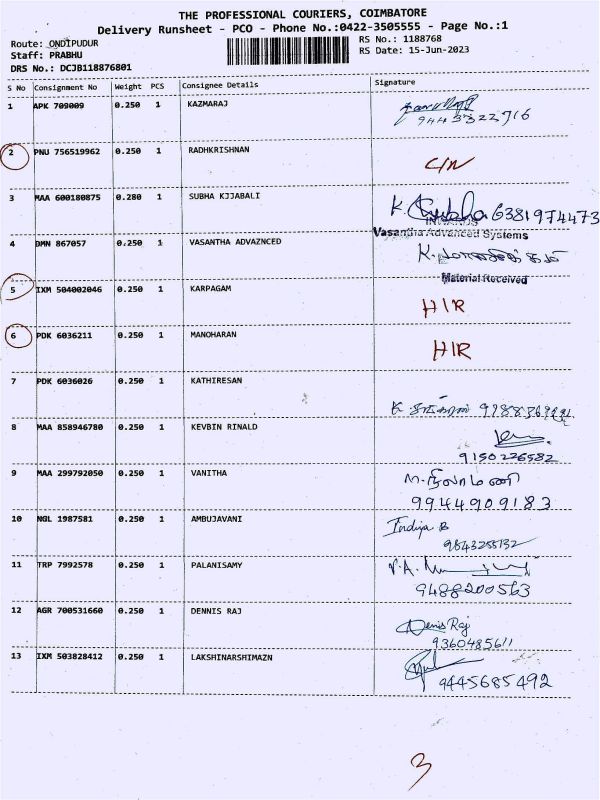 THE PROFESSIONAL COURIERS, COIMBATORE
Delivery Runsheet - PCO - Phone No.:0422-3505555 - Page No.:1
Route: ONDIPUDUR RS No.: 1188768
Staff: PRABHU RS Date: 15-Jun-2023
DRS No.: DCJB118876801
S No Consignment No Weight PCS Consignee Details Signature
1 APK 709009 0.250 1 KAZMARAJ
9443322716
2 PNU 756519962 0.250 1 RADHKRISHNAN C/N
3 MAA 600180875 0.280 1 SUBHA KJJABALI K. Subha 6381974473
Vasantha Advanced Systems
4 BMN 867057 0.250 1 VASANTHA ADVAZNCED
Material Received
5 IXM 504002046 0.250 1 KARPAGAM H/R
6 PDK 6036211 0.250 1 MANOHARAN H/R
7 PDK 6036026 0.250 1 KATHIRESAN
8 MAA 858946780 0.250 1 KEVBIN RINALD
9150226582
9 MAA 299792050 0.250 1 VANITHA M. நிலாமணி
9944909183
10 NGL 1987581 0.250 1 AMBUJAVANI Indiya B
9843255132
11 TRP 7992578 0.250 1 PALANISAMY P.A.
9488200563
12 AGR 700531660 0.250 1 DENNIS RAJ Denis Raj
9360485611
13 IXM 503828412 0.250 1 LAKSHINARSHIMAZN
9445685492
3